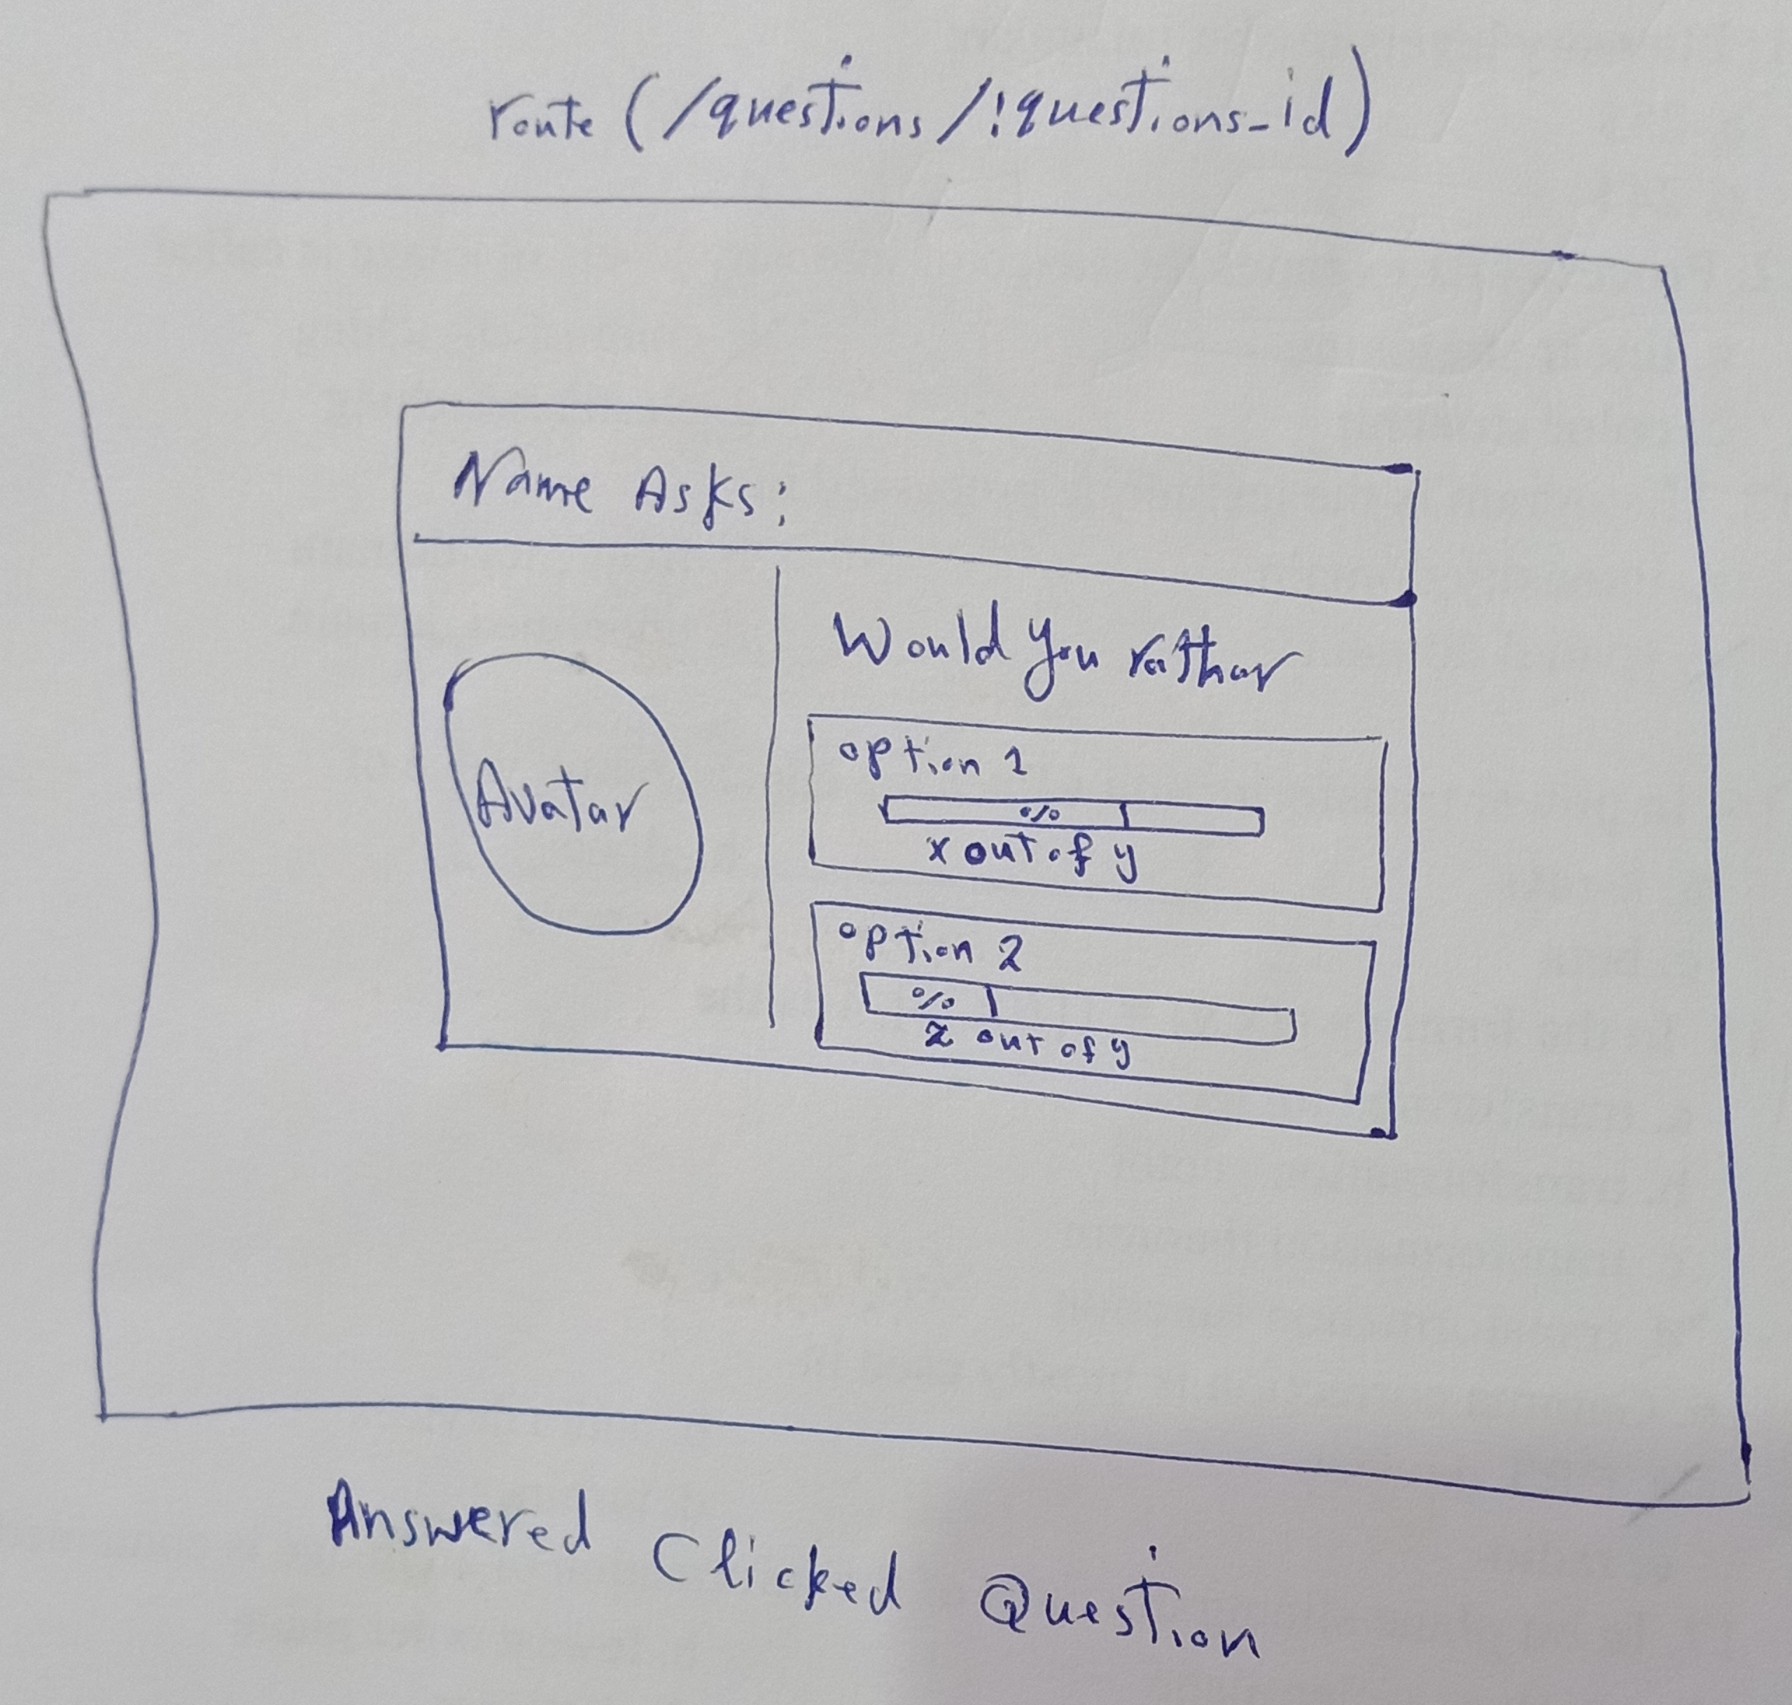 route (/questions/!questions_id)
Name Asks:
Avatar
Would you rather
option 1
%
x out of y
option 2
%
z out of y
Answered Clicked Question